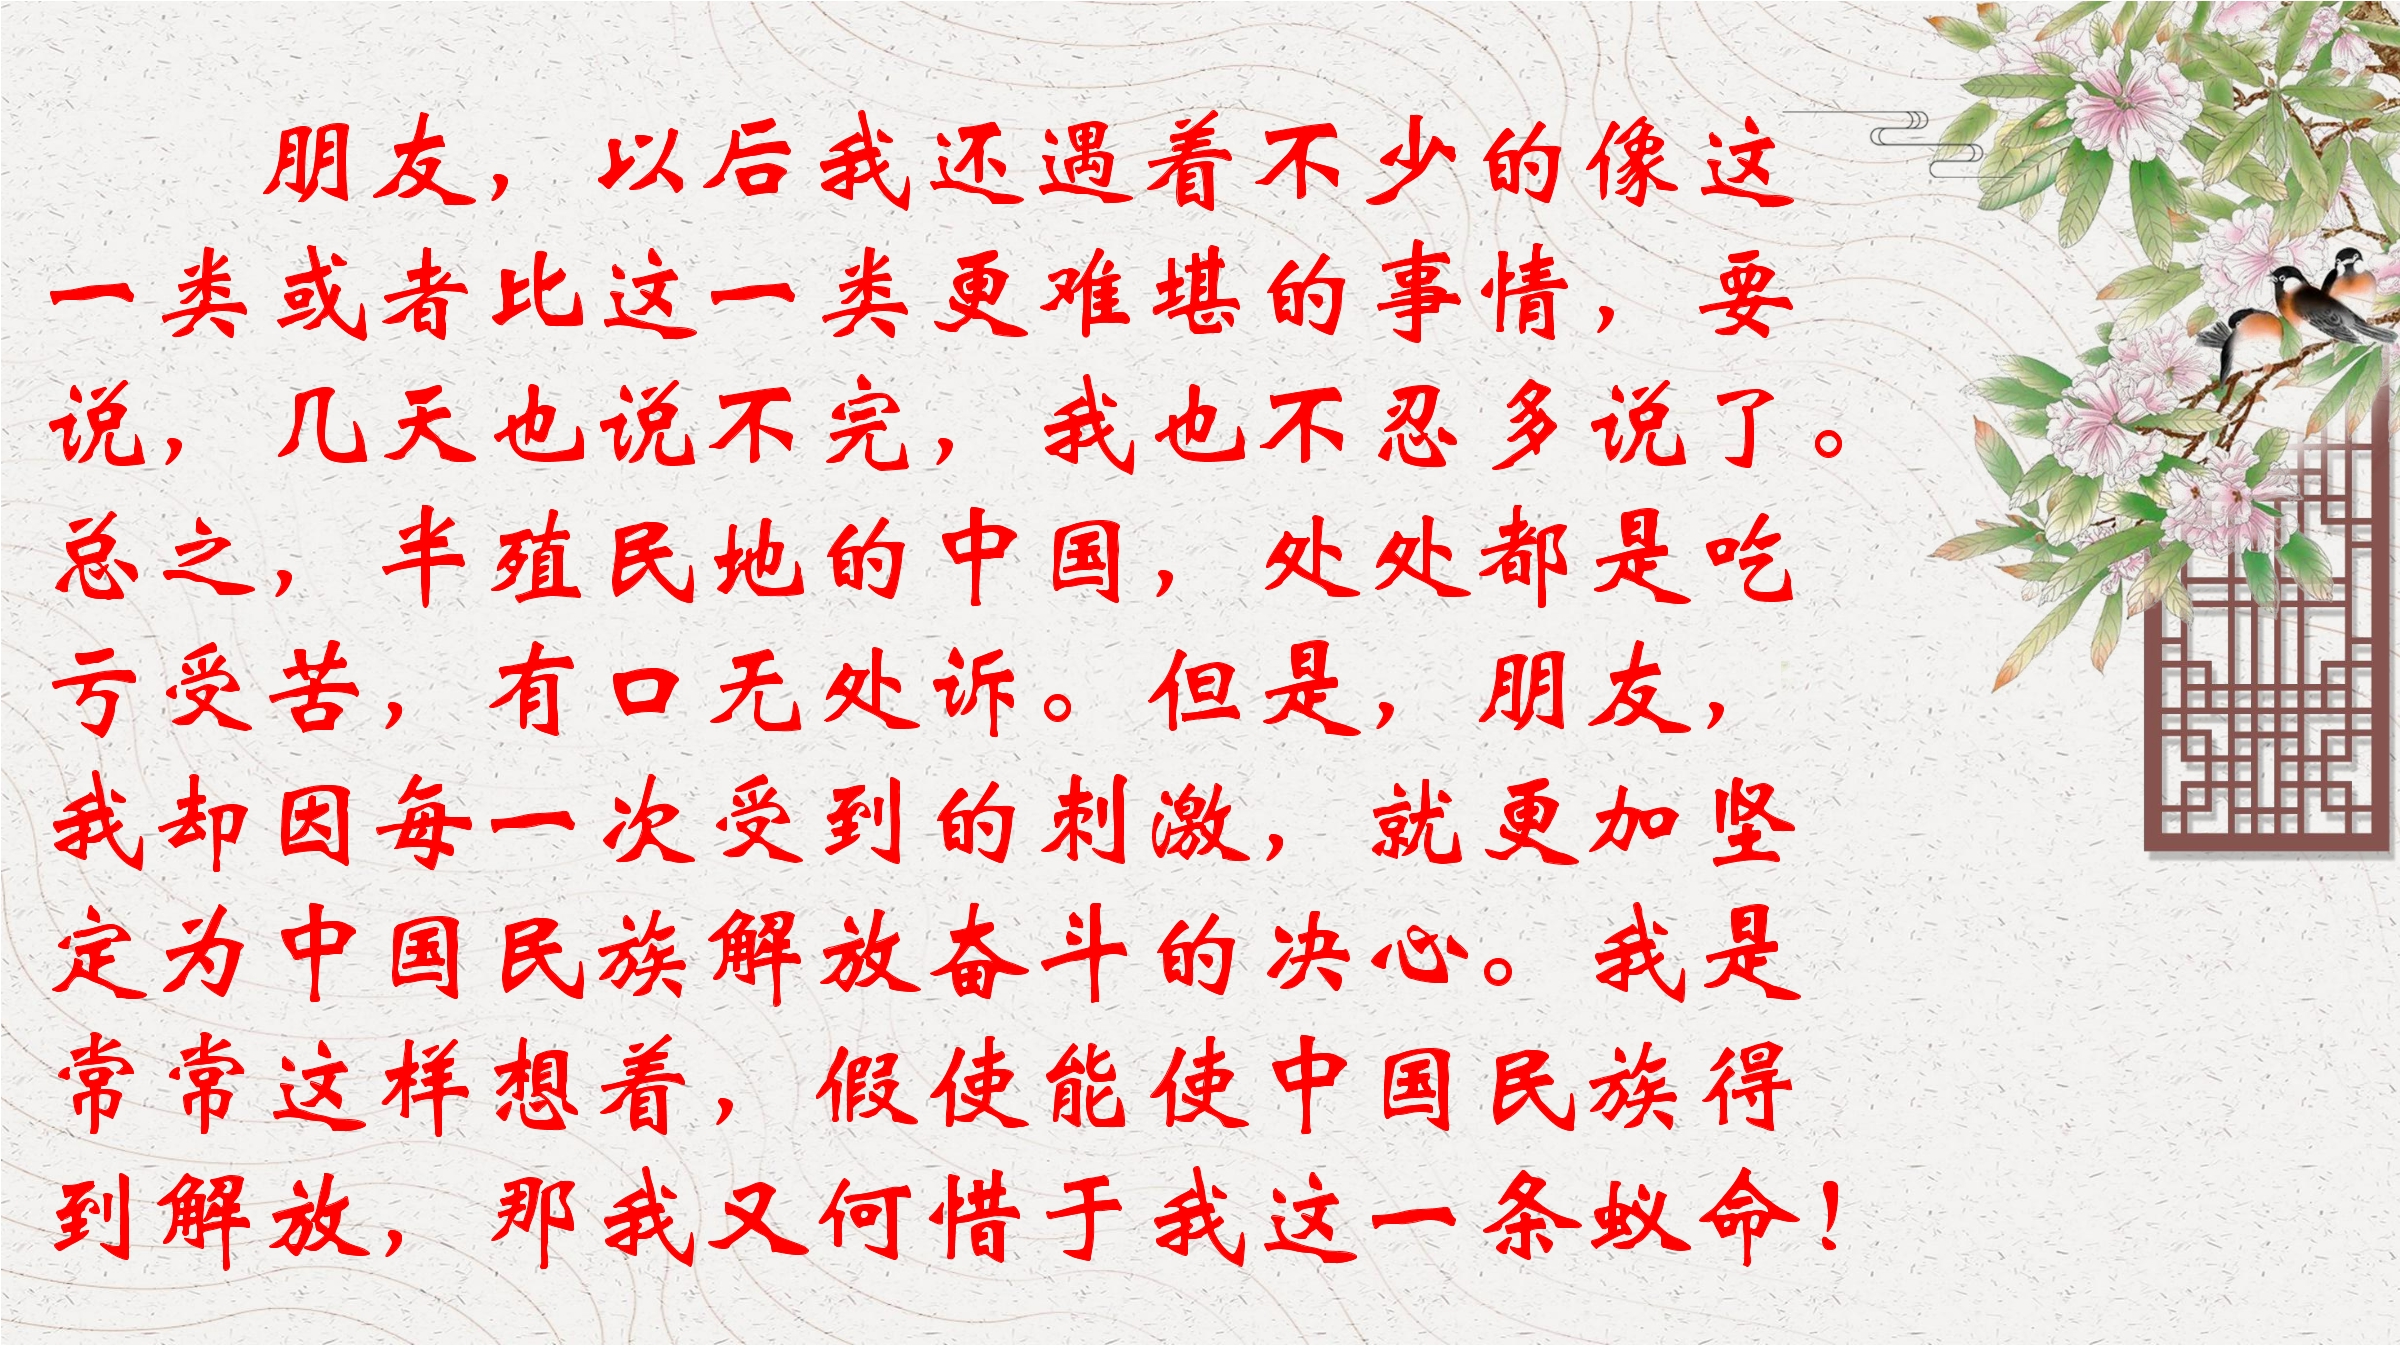 朋友，以后我还遇着不少的像这
一类或者比这一类更难堪的事情，要
说，几天也说不完，我也不忍多说了。
总之，半殖民地的中国，处处都是吃
亏受苦，有口无处诉。但是，朋友，
我却因每一次受到的刺激，就更加坚
定为中国民族解放奋斗的决心。我是
常常这样想着，假使能使中国民族得
到解放，那我又何惜于我这一条蚁命！